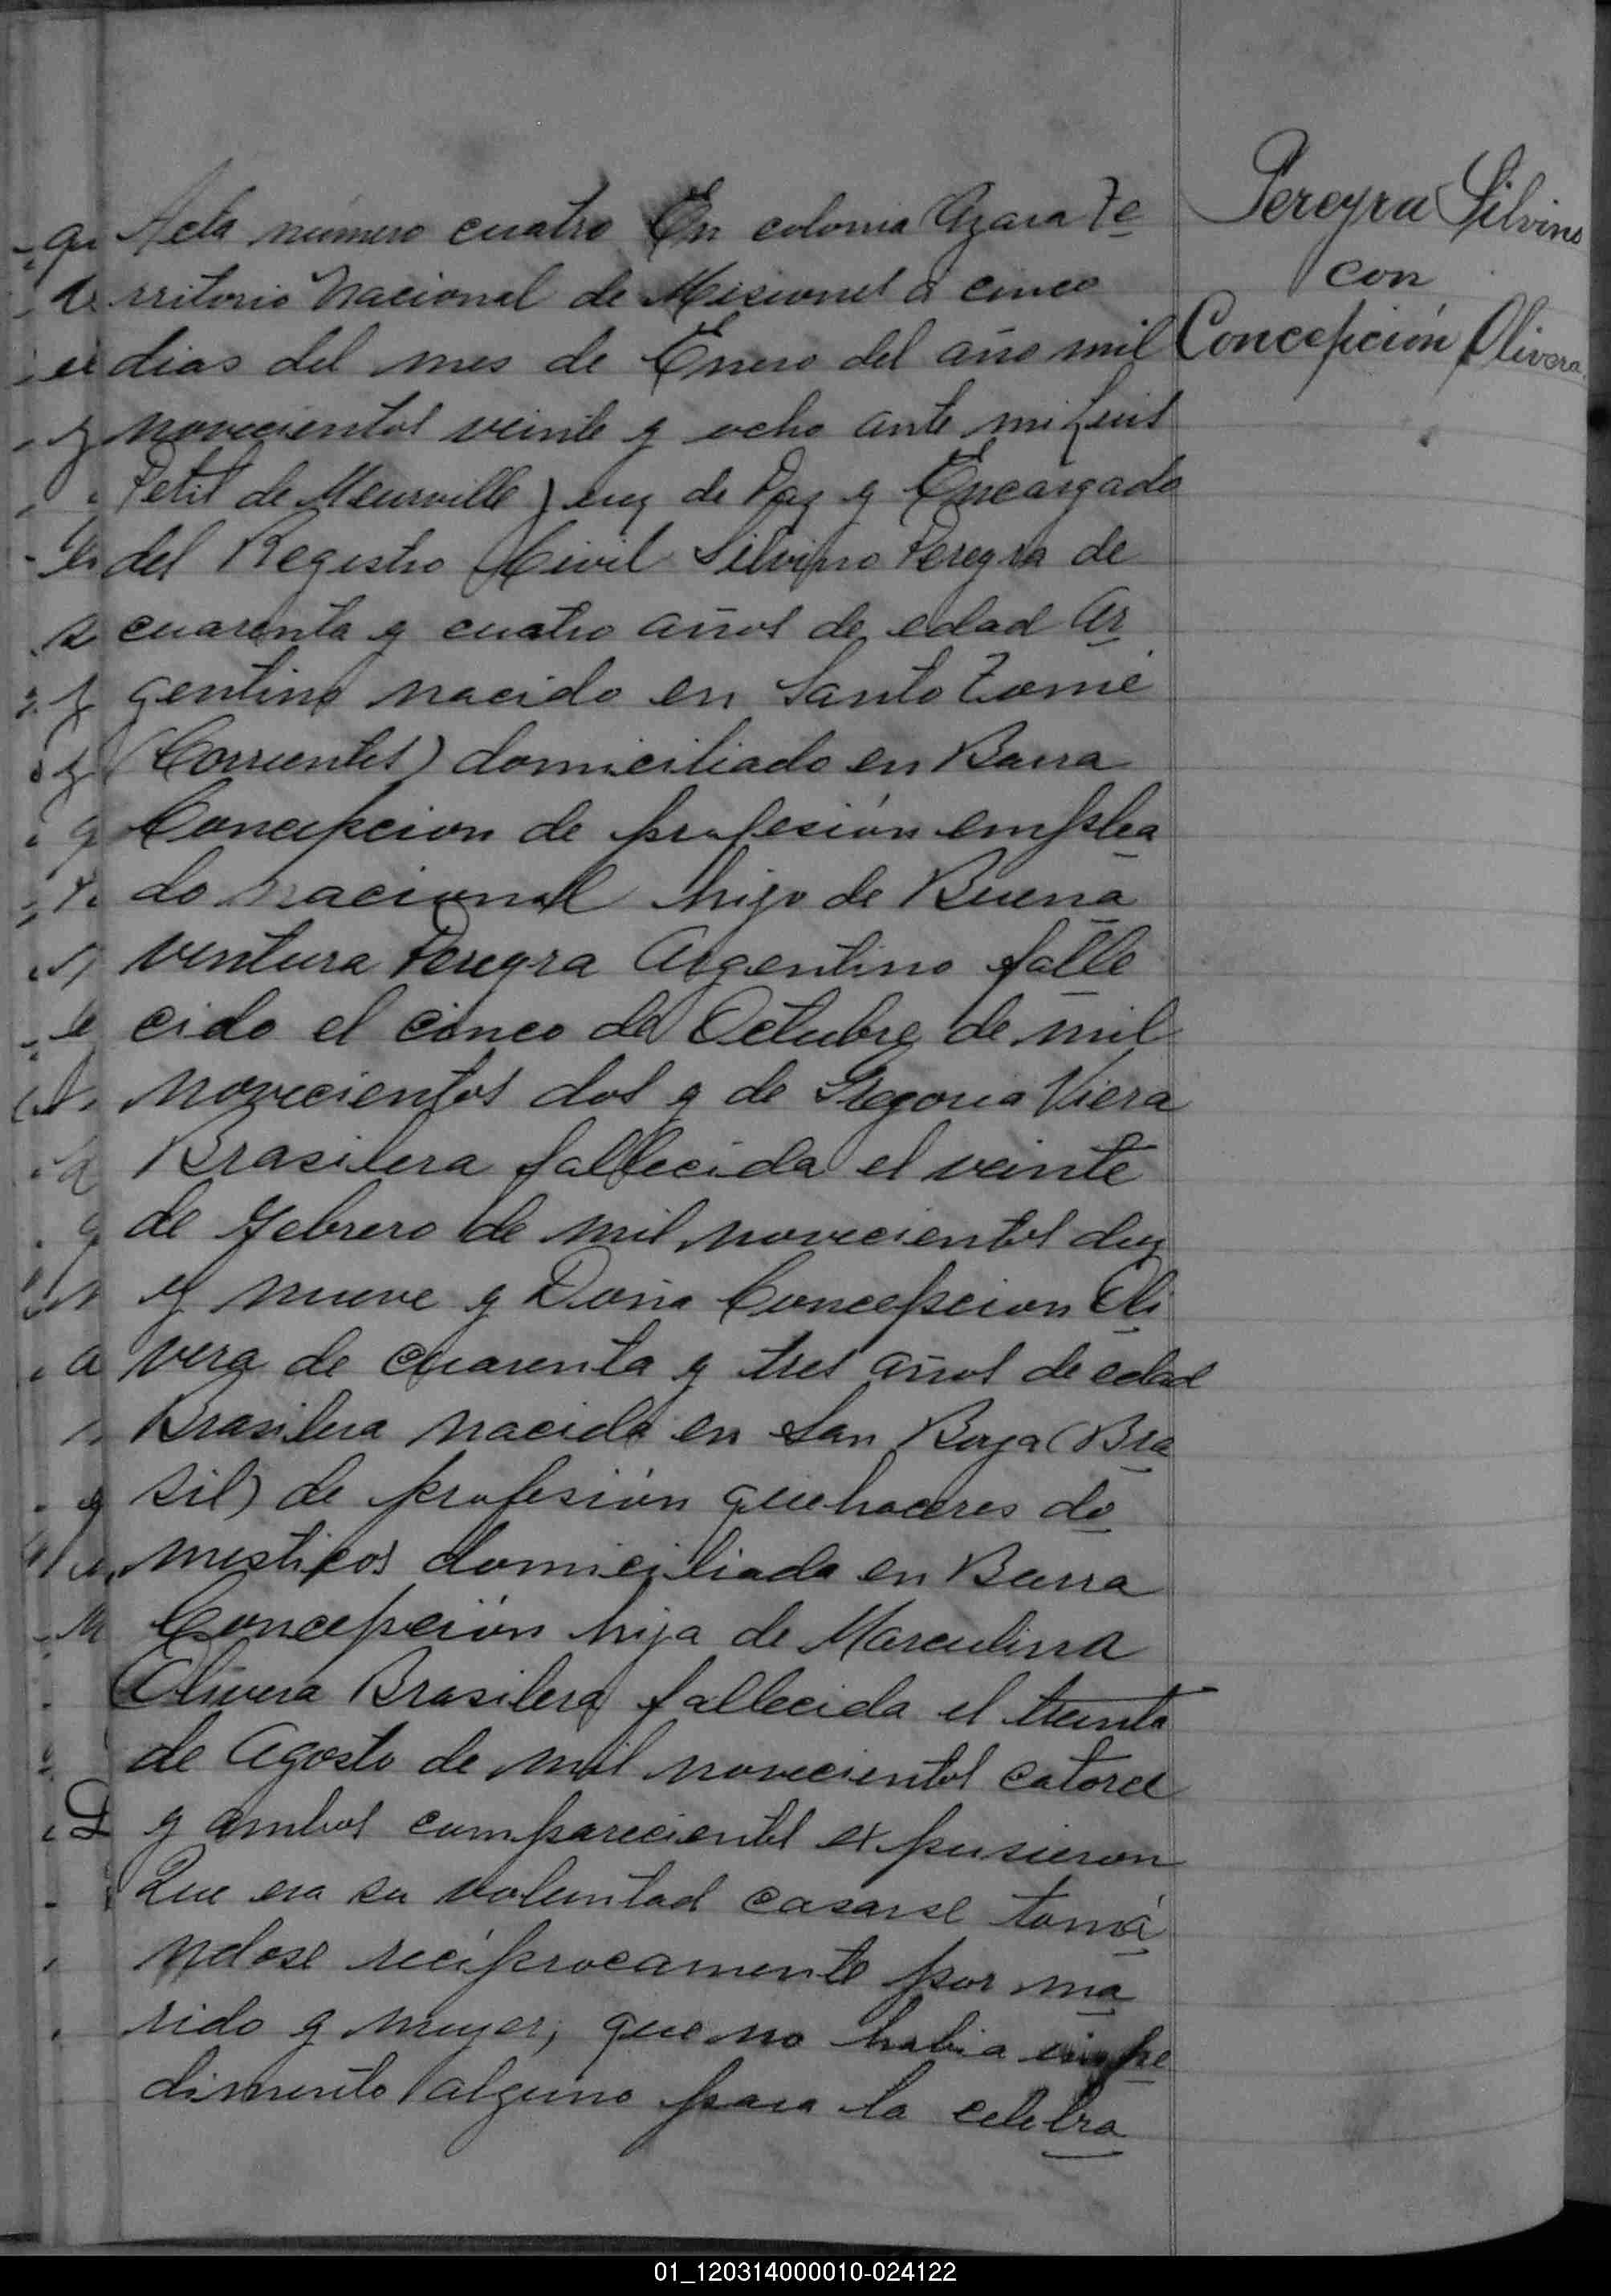 Pereyra Silvino
con
Concepción Olivera
Acta número cuatro En colonia Azara Te
rritorio Nacional de Misiones a cinco
dias del mes de Enero del año mil
novecientos veinte y ocho ante mi Luis
Petit de Meurville Juez de Paz y Encargado
del Registro Civil Silvino Pereyra de
cuarenta y cuatro años de edad Ar
gentino nacido en Santo Tomé
(Corrientes) domiciliado en Barra
Concepcion de profesión emplea
do nacional hijo de Buena
ventura Pereyra Argentino falle
cido el cinco de Octubre de mil
novecientos dos y de Gregoria Viera
Brasilera fallecida el veinte
de Febrero de mil novecientos diez
y nueve y Doña Concepcion Oli
vera de cuarenta y tres años de edad
Brasilera nacida en San Borja (Bra
sil) de profesión quehaceres do
mesticos domiciliada en Barra
Concepción hija de Marculina
Olivera Brasilera fallecida el treinta
de Agosto de mil novecientos catorce
y ambos comparecientes expusieron
Que era su voluntad casarse tomá
ndose recíprocamente por ma
rido y mujer, que no habia impe
dimento alguno para la celebra
01_120314000010-024122